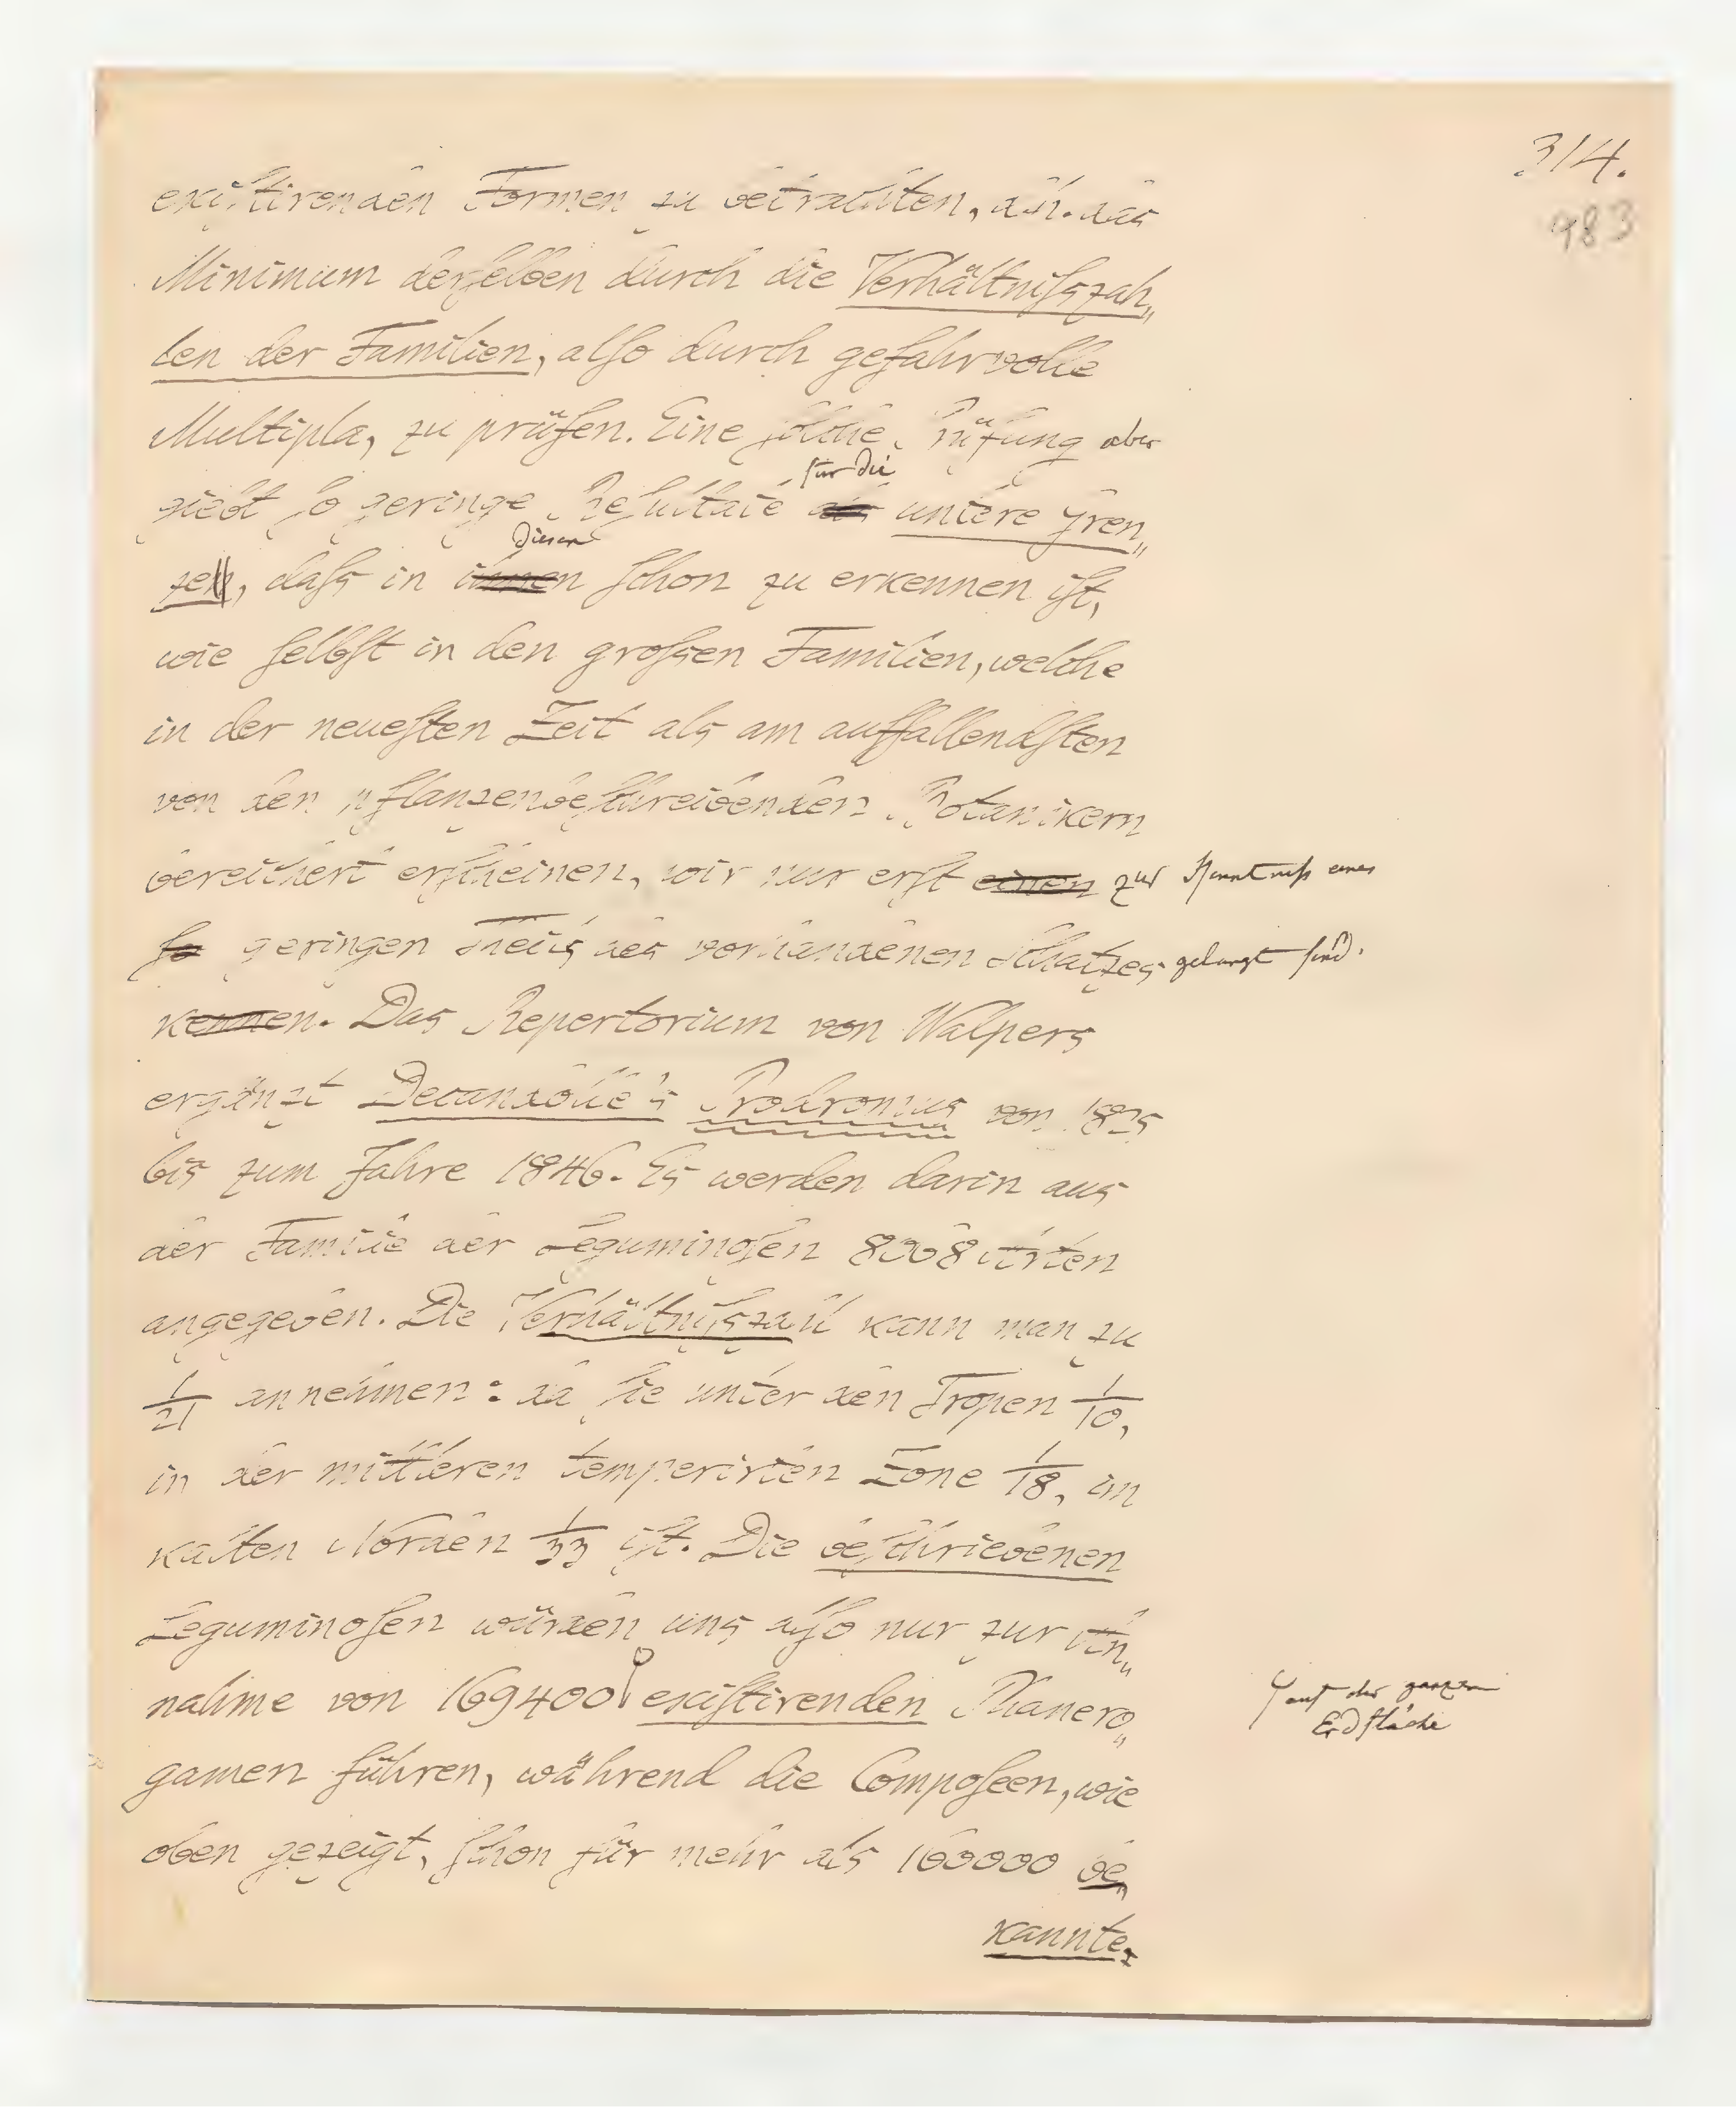 314.
983
existirenden Formen zu betrachten, d.h. das
Minimum derselben durch die Verhältnisszah„
len der Familien, also durch gefahrvolle
Multipla, zu prüfen. Eine solche Prüfung aber
für die
giebt so geringe Resultate als untere Gren„
diesen
zen, dass in ihnen schon zu erkennen ist,
wie selbst in den grossen Familien, welche
in der neuesten Zeit als am auffallendsten
von den pflanzenbeschreibenden Botanikern
bereichert erscheinen, wir nur erst einen zur Kenntniss eines
so geringen Theils des vorhandenen Schatzes gelangt sind.
kennen. Das Repertorium von Walpers
ergänzt Decandolle's Prodromus von 1825
bis zum Jahre 1846. Es werden darin aus
der Familie der Leguminosen 8068 Arten
angegeben. Die Verhältnisszahl kann man zu
1/21 annehmen: da sie unter den Tropen 1/10,
in der mittleren temperirten Zone 1/18, im
kalten Norden 1/33 ist. Die beschriebenen
Leguminosen würden uns also nur zur An„
nahme von 169400 existirenden Phanero„
auf der ganzen
Erdfläche
gamen führen, während die Composeen, wie
oben gezeigt, schon für mehr als 160000 be„
kannte